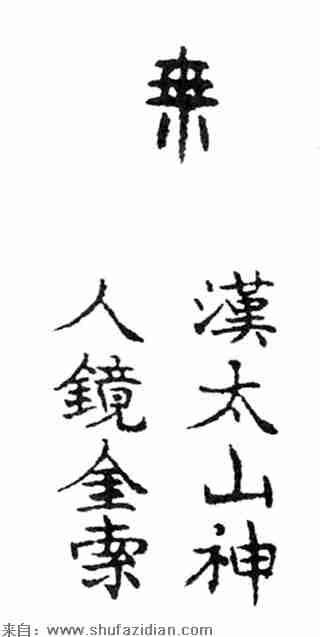 乗
漢太山神
人鏡金索
来自：www.shufazidian.com